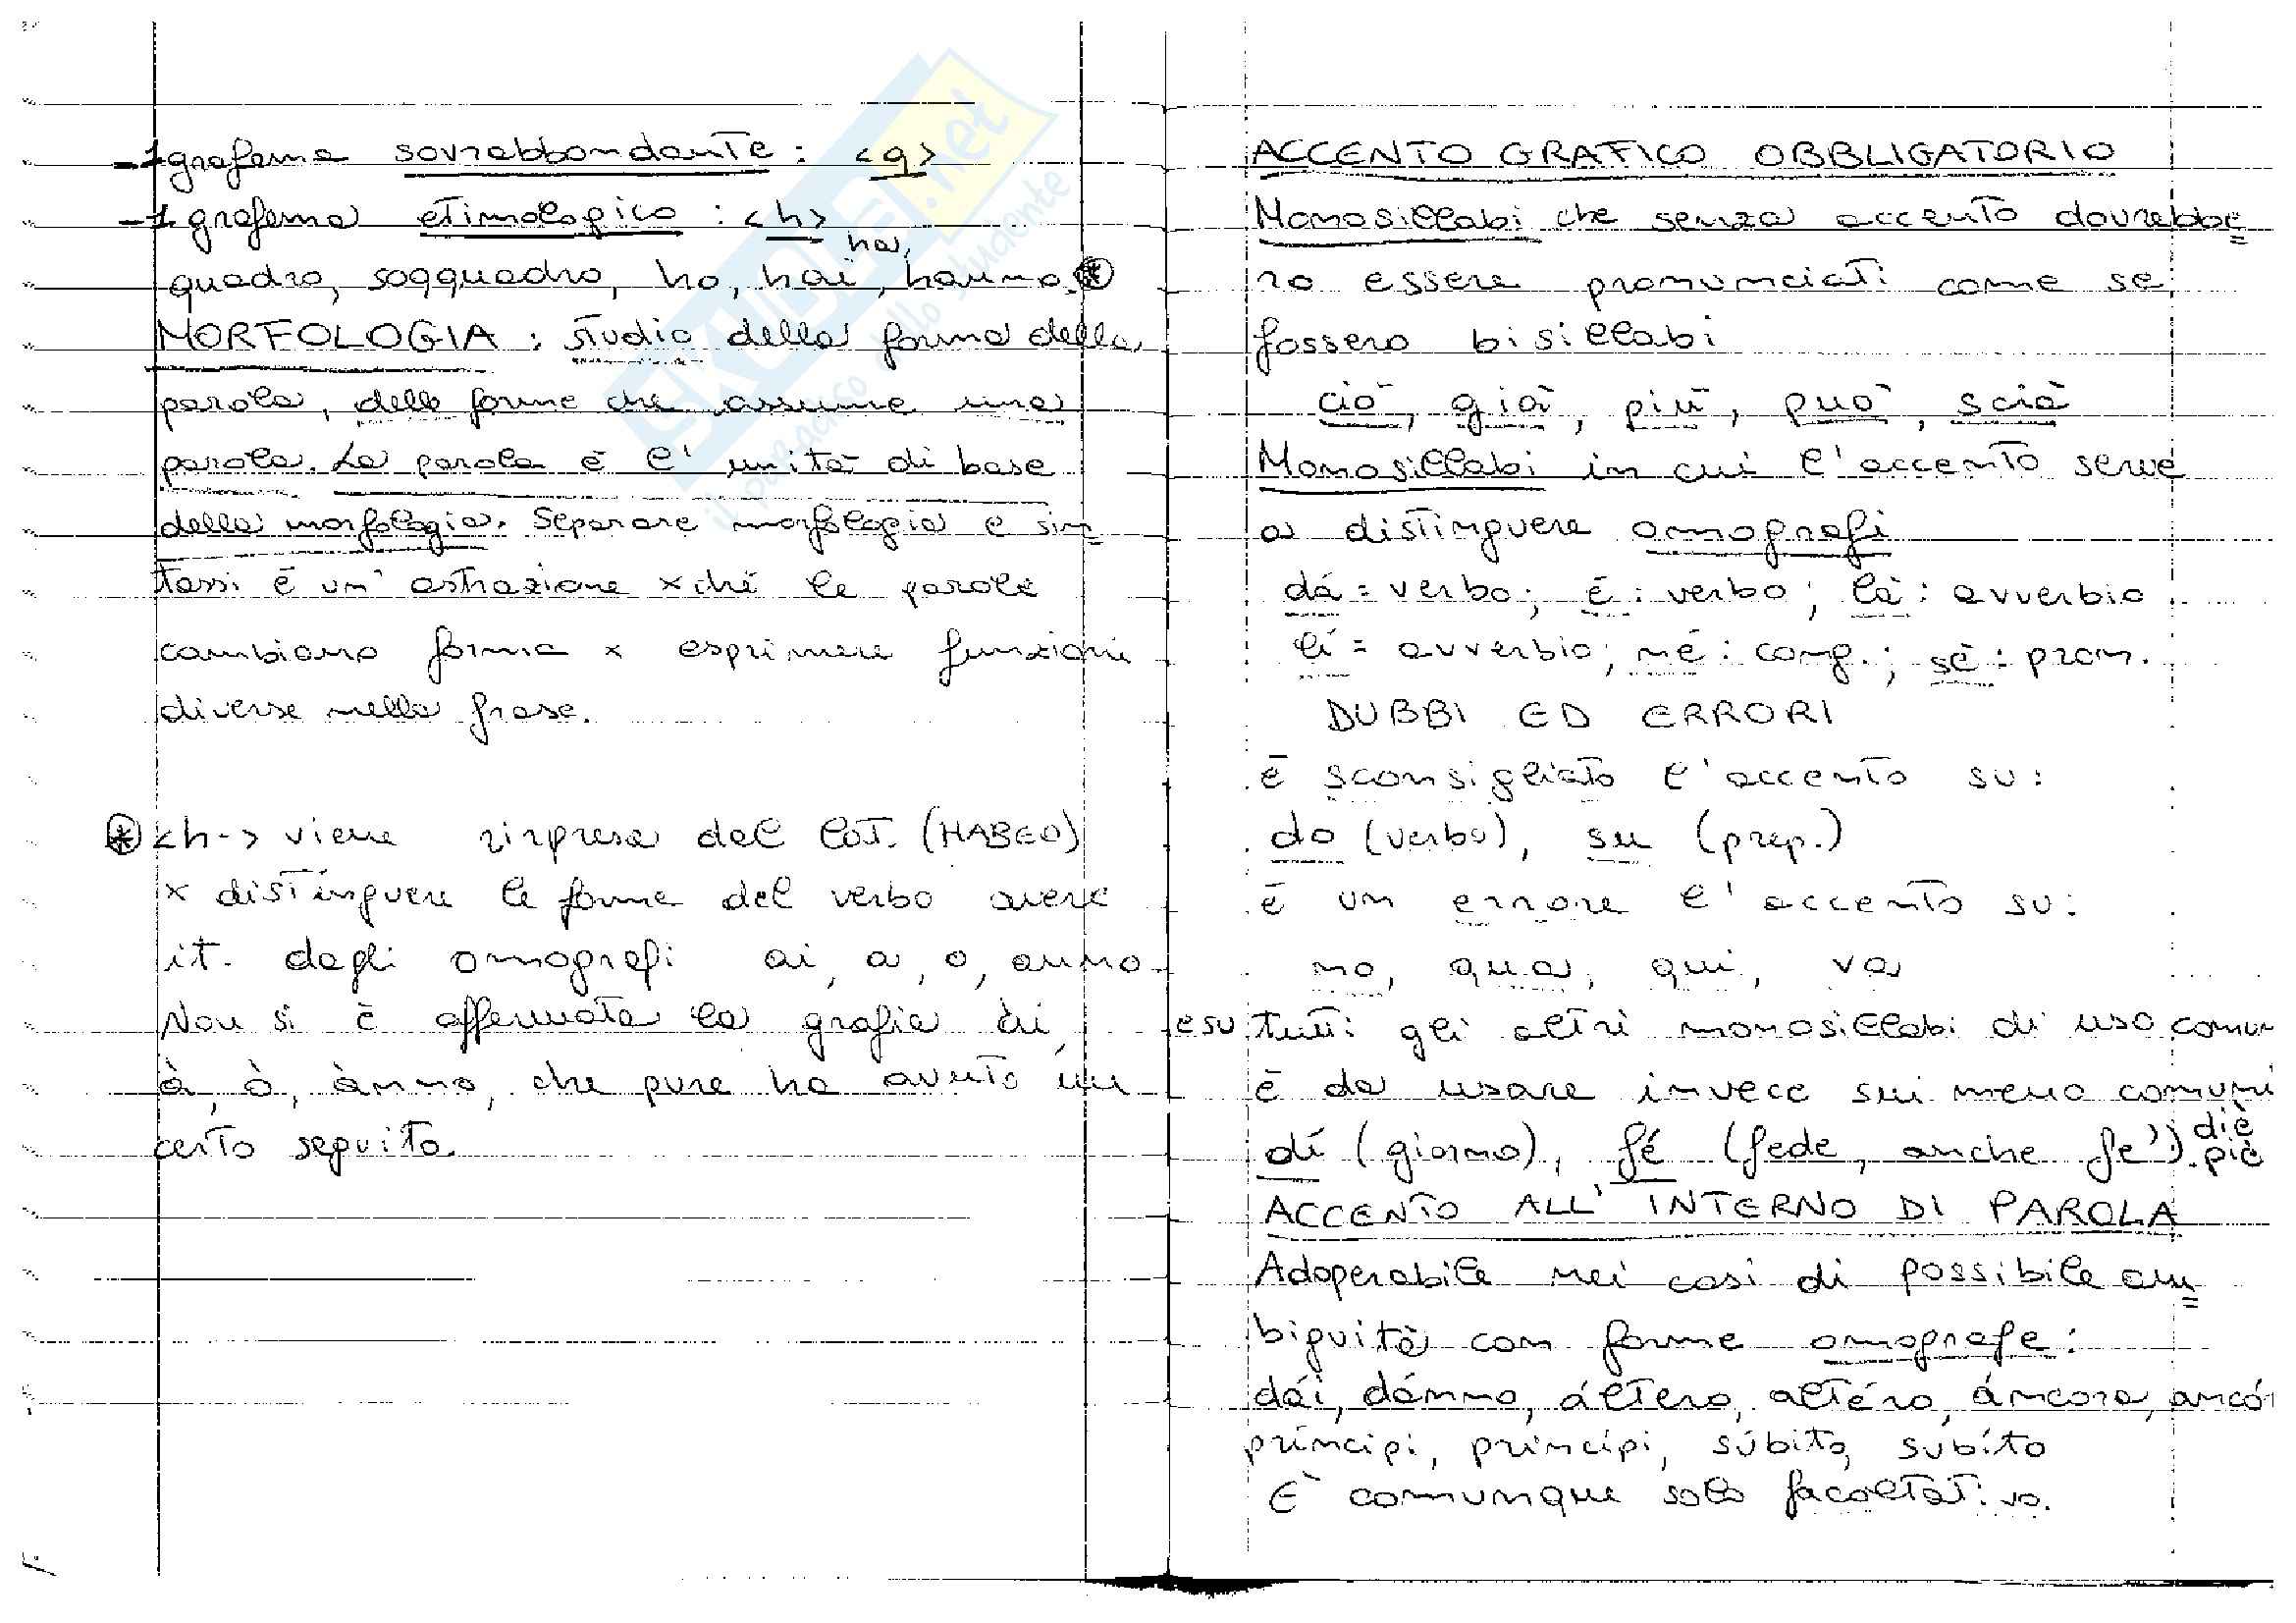 -1 grafema sovrabbondante: <q>
-1 grafema etimologico: <h>
ha,
quadro, soqquadro, ho, hai, hanno. *
MORFOLOGIA: studio della forma della
parola, delle forme che assume una
parola. La parola è l'unità di base
della morfologia. Separare morfologia e sin
tassi è un' astrazione xché le parole
cambiano forma x esprimere funzioni
diverse nella frase.
* <h-> viene ripresa dal lat. (HABEO)
x distinguere le forme del verbo avere
it. dagli omografi ai, a, o, anno
Non si è affermata la grafia ài,
à, ò, ànno, che pure ha avuto un
certo seguito.
ACCENTO GRAFICO OBBLIGATORIO
Monosillabi che senza accento dovrebbe
ro essere pronunciati come se
fossero bisillabi
ciò, già, più, può, scià
Monosillabi in cui l'accento serve
a distinguere omografi
dà = verbo; è: verbo; là: avverbio
lì = avverbio; né: cong.; sé: pron.
DUBBI ED ERRORI
è sconsigliato l'accento su:
do (verbo), su (prep.)
è un errore l'accento su:
no, qua, qui, va
e su tutti gli altri monosillabi di uso comun
è da usare invece sui meno comuni
dí (giorno), fé (fede, anche fe').
diè
piè
ACCENTO ALL'INTERNO DI PAROLA
Adoperabile nei casi di possibile am
biguità con forme omografe:
dái, dánno, áltero, altéro, áncora, ancór
príncipi, princípi, súbito, subíto
È comunque solo facoltativo.
SKUOLA.net
il paradiso dello studente